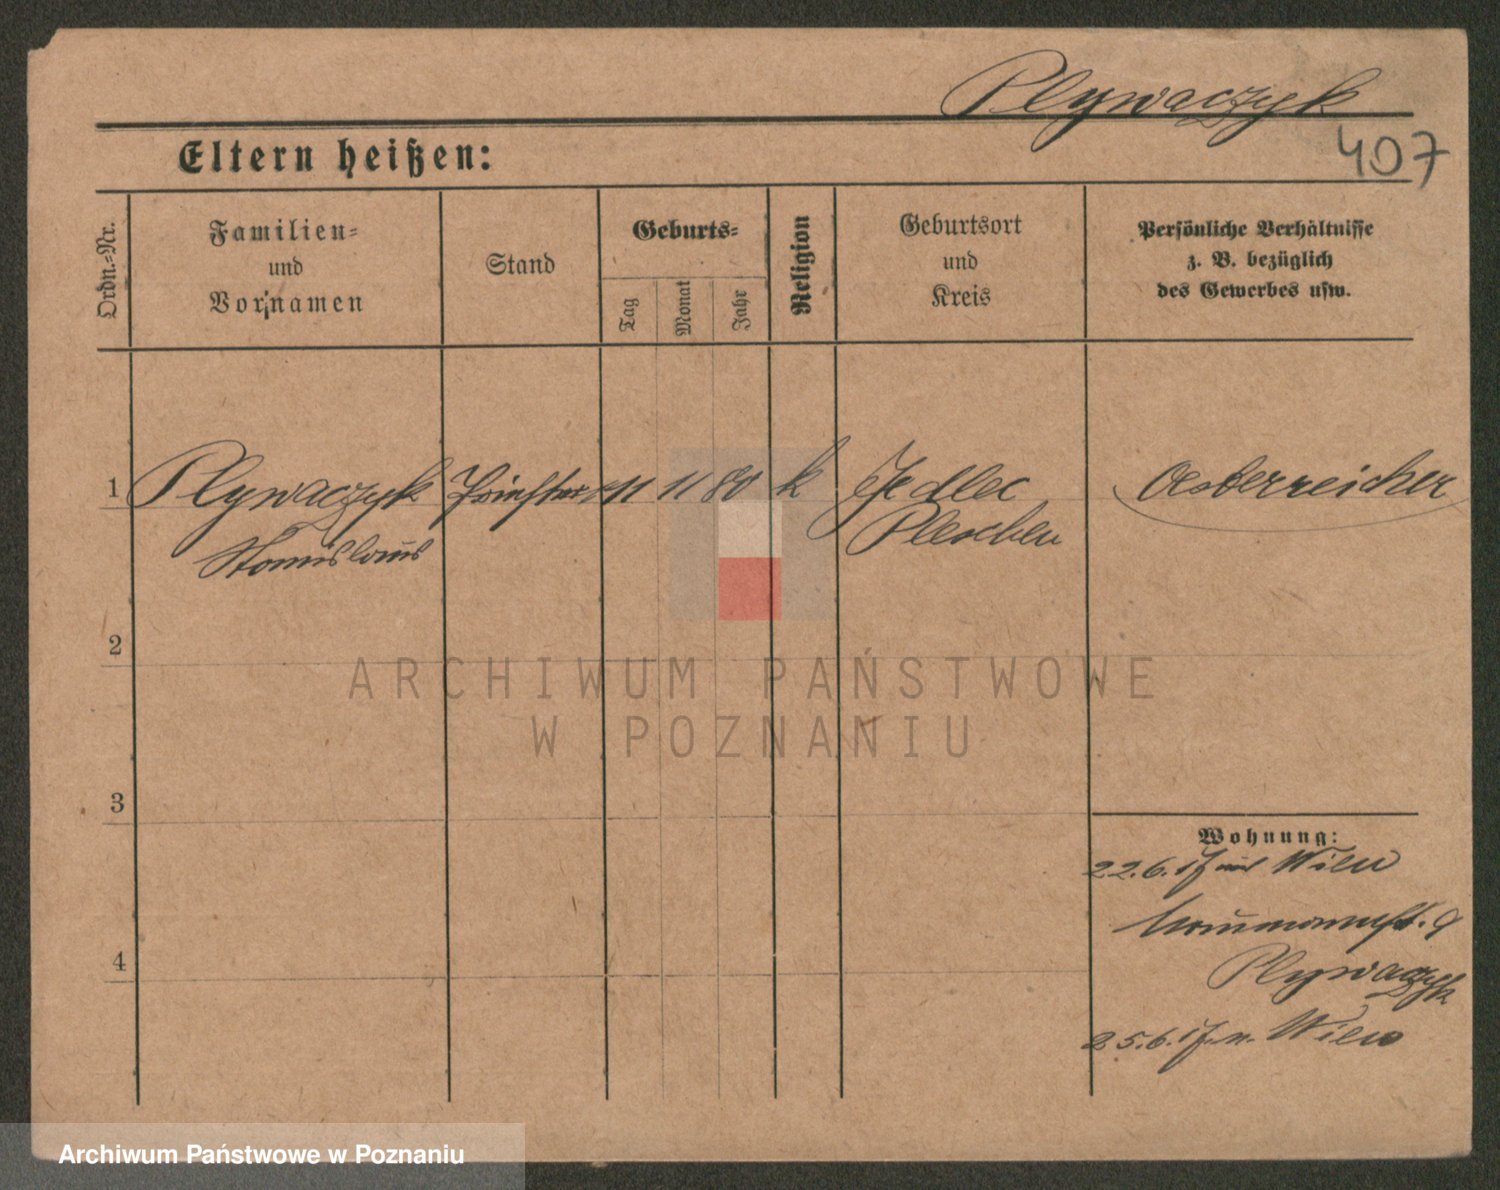 Plywaczyk
407
Eltern heißen:
Ordn.-Nr.
Familien-
und
Vornamen
Stand
Geburts-
Tag
Monat
Jahr
Religion
Geburtsort
und
Kreis
Persönliche Verhältnisse
z. B. bezüglich
des Gewerbes usw.
1 Plywaczyk Priester 11 11 80 k Jedlec Oesterreicher
Stanislaus Pleschen
2
3
4
Wohnung:
22.6.17 Wien
Naumannstr. 9
Plywaczyk
25.6.17. n. Wien
ARCHIWUM PAŃSTWOWE
W POZNANIU
Archiwum Państwowe w Poznaniu